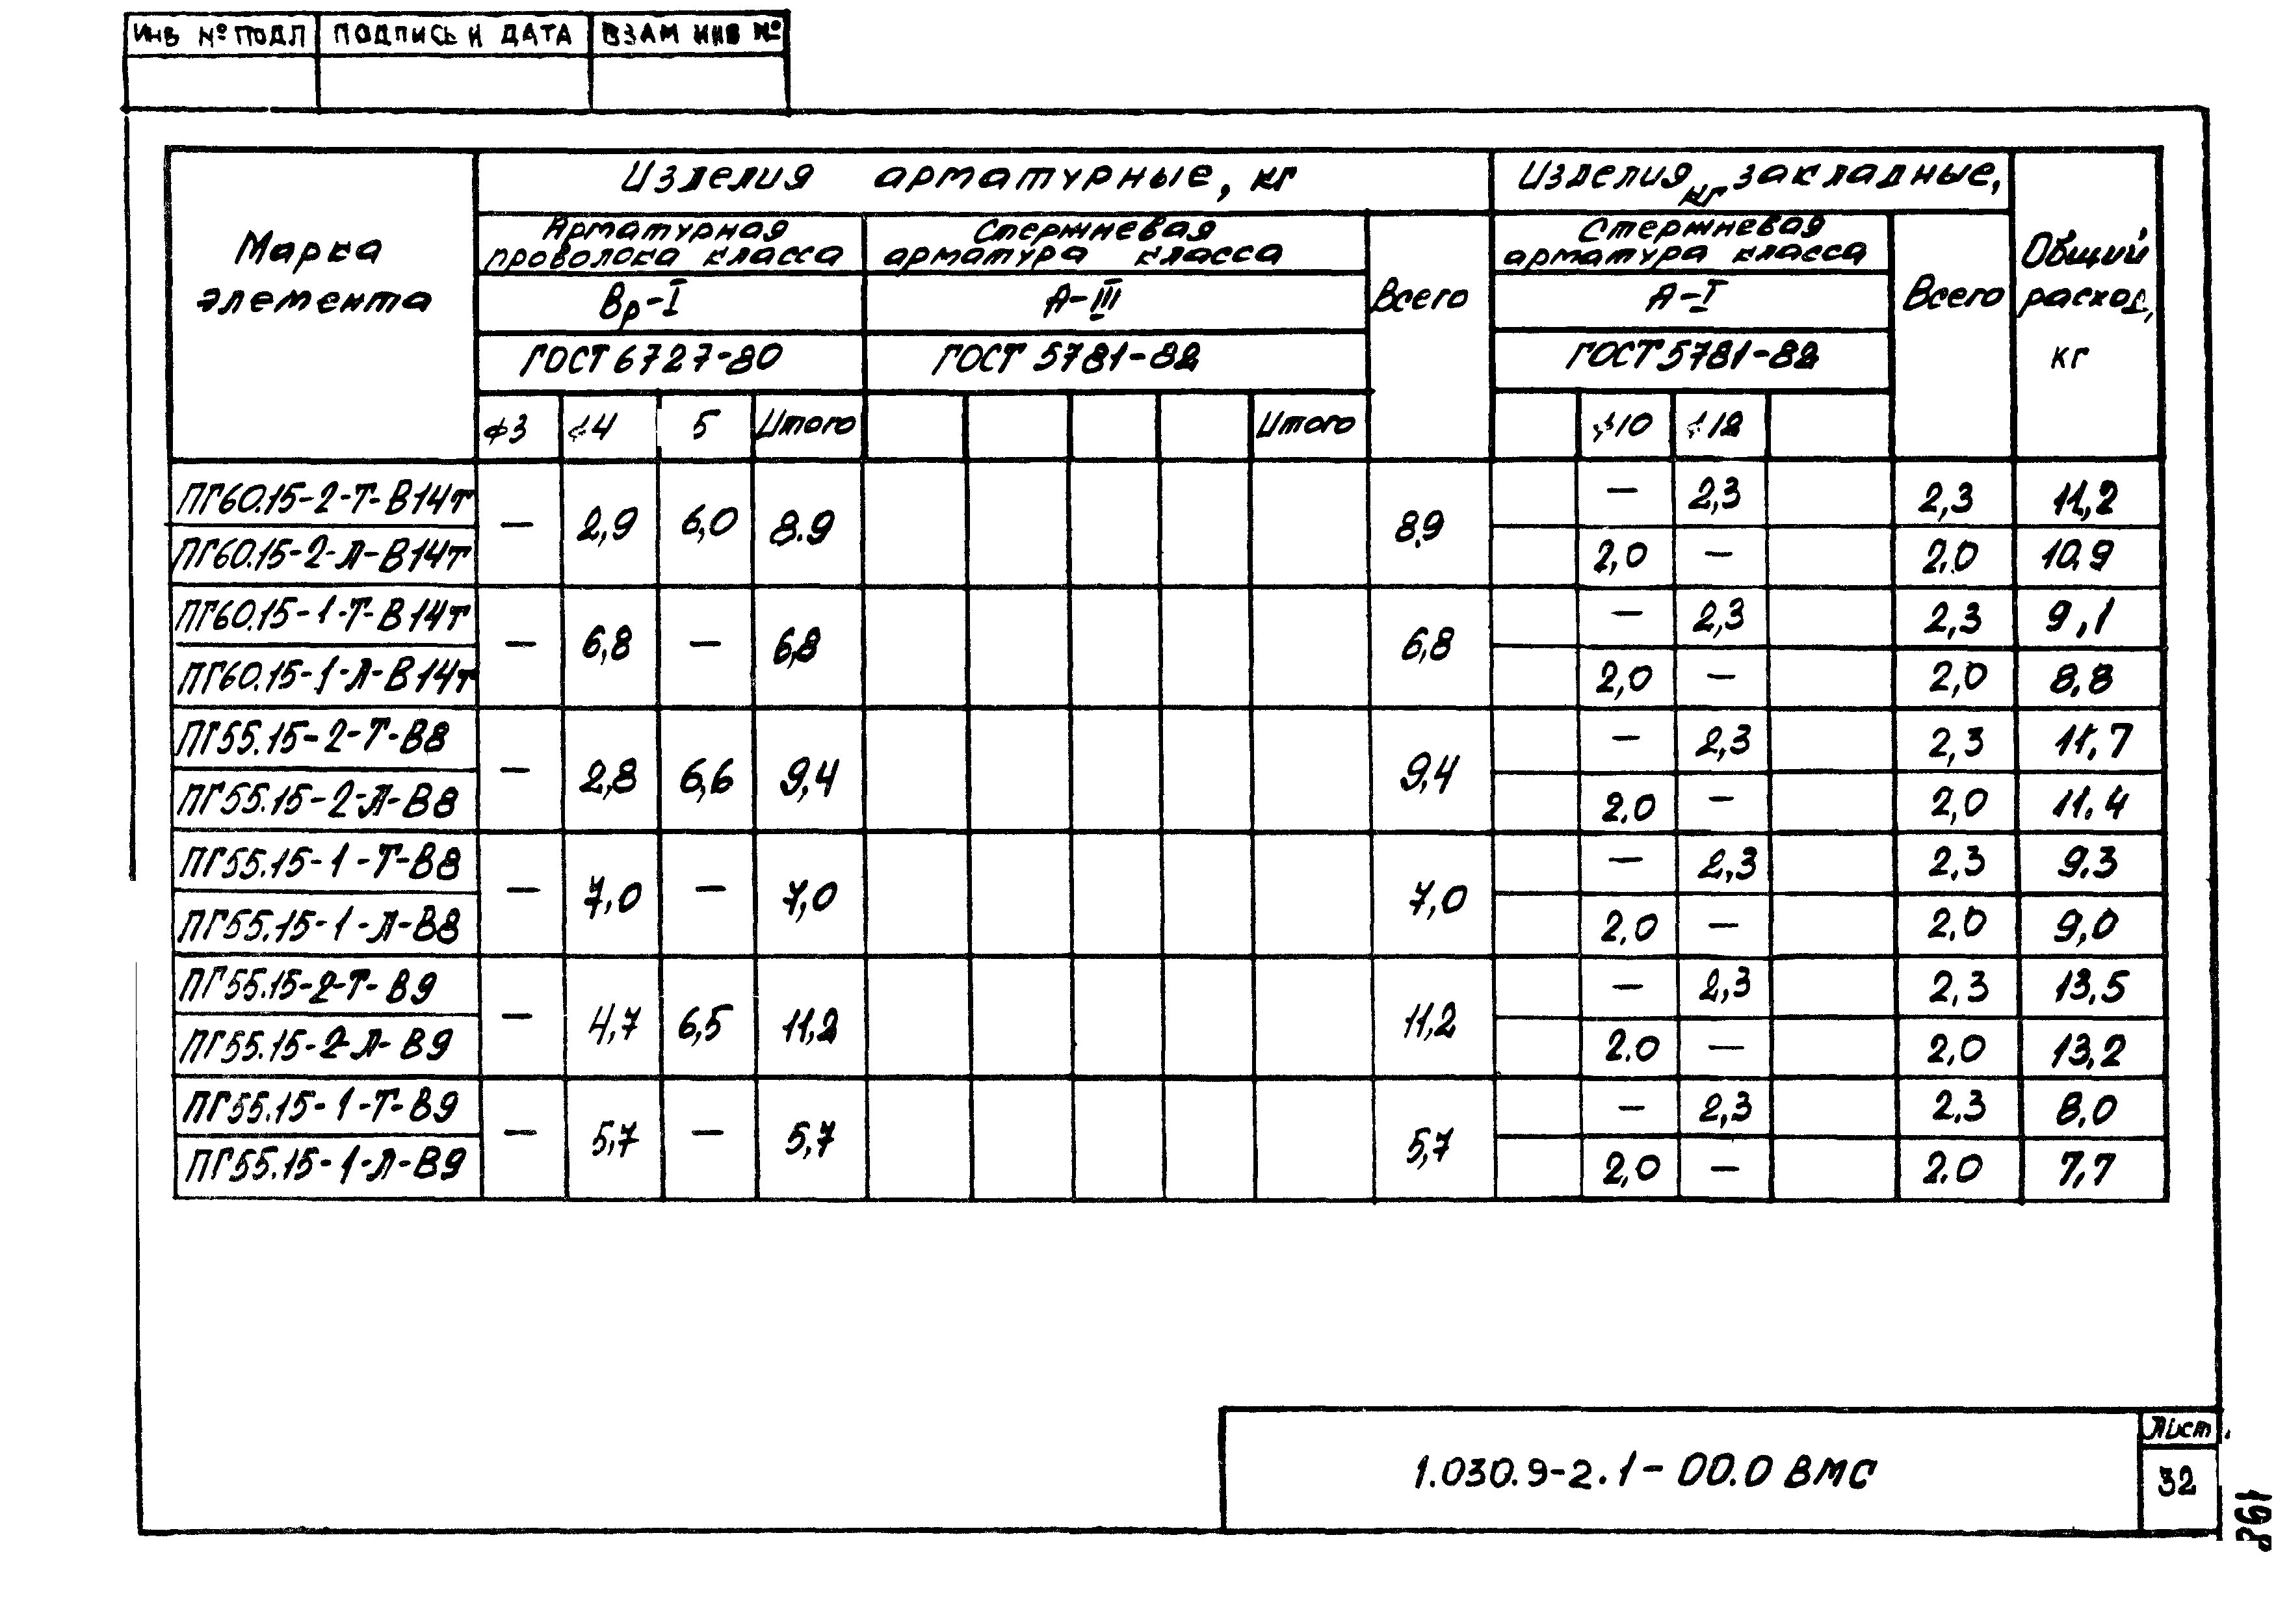 ИНВ № ПОДЛ ПОДПИСЬ И ДАТА ВЗАМ ИНВ №
Марка элемента
Изделия арматурные, кг
Изделия закладные, кг
Общий расход, кг
Арматурная проволока класса
Стержневая арматура класса
Всего
Стержневая арматура класса
Всего
Вр-I
А-III
А-I
ГОСТ 6727-80
ГОСТ 5781-82
ГОСТ 5781-82
ф3 ф4 5 Итого Итого ф10 ф12
ПГ60.15-2-Т-В14т — 2,9 6,0 8.9 8.9 — 2,3 2,3 11,2
ПГ60.15-2-Л-В14т 2,0 — 2,0 10,9
ПГ60.15-1-Т-В14т — 6,8 — 6,8 6,8 — 2,3 2,3 9,1
ПГ60.15-1-Л-В14т 2,0 — 2,0 8,8
ПГ55.15-2-Т-В8 — 2,8 6,6 9,4 9,4 — 2,3 2,3 11,7
ПГ55.15-2-Л-В8 2.0 — 2,0 11.4
ПГ55.15-1-Т-В8 — 7,0 — 7,0 7,0 — 2,3 2,3 9.3
ПГ55.15-1-Л-В8 2,0 — 2,0 9,0
ПГ55.15-2-Т-В9 — 4,7 6,5 11,2 11,2 — 2,3 2,3 13,5
ПГ55.15-2-Л-В9 2.0 — 2,0 13,2
ПГ55.15-1-Т-В9 — 5,7 — 5,7 5,7 — 2,3 2,3 8,0
ПГ55.15-1-Л-В9 2,0 — 2.0 7,7
1.030.9-2.1-00.0 ВМС
Лист
32
198